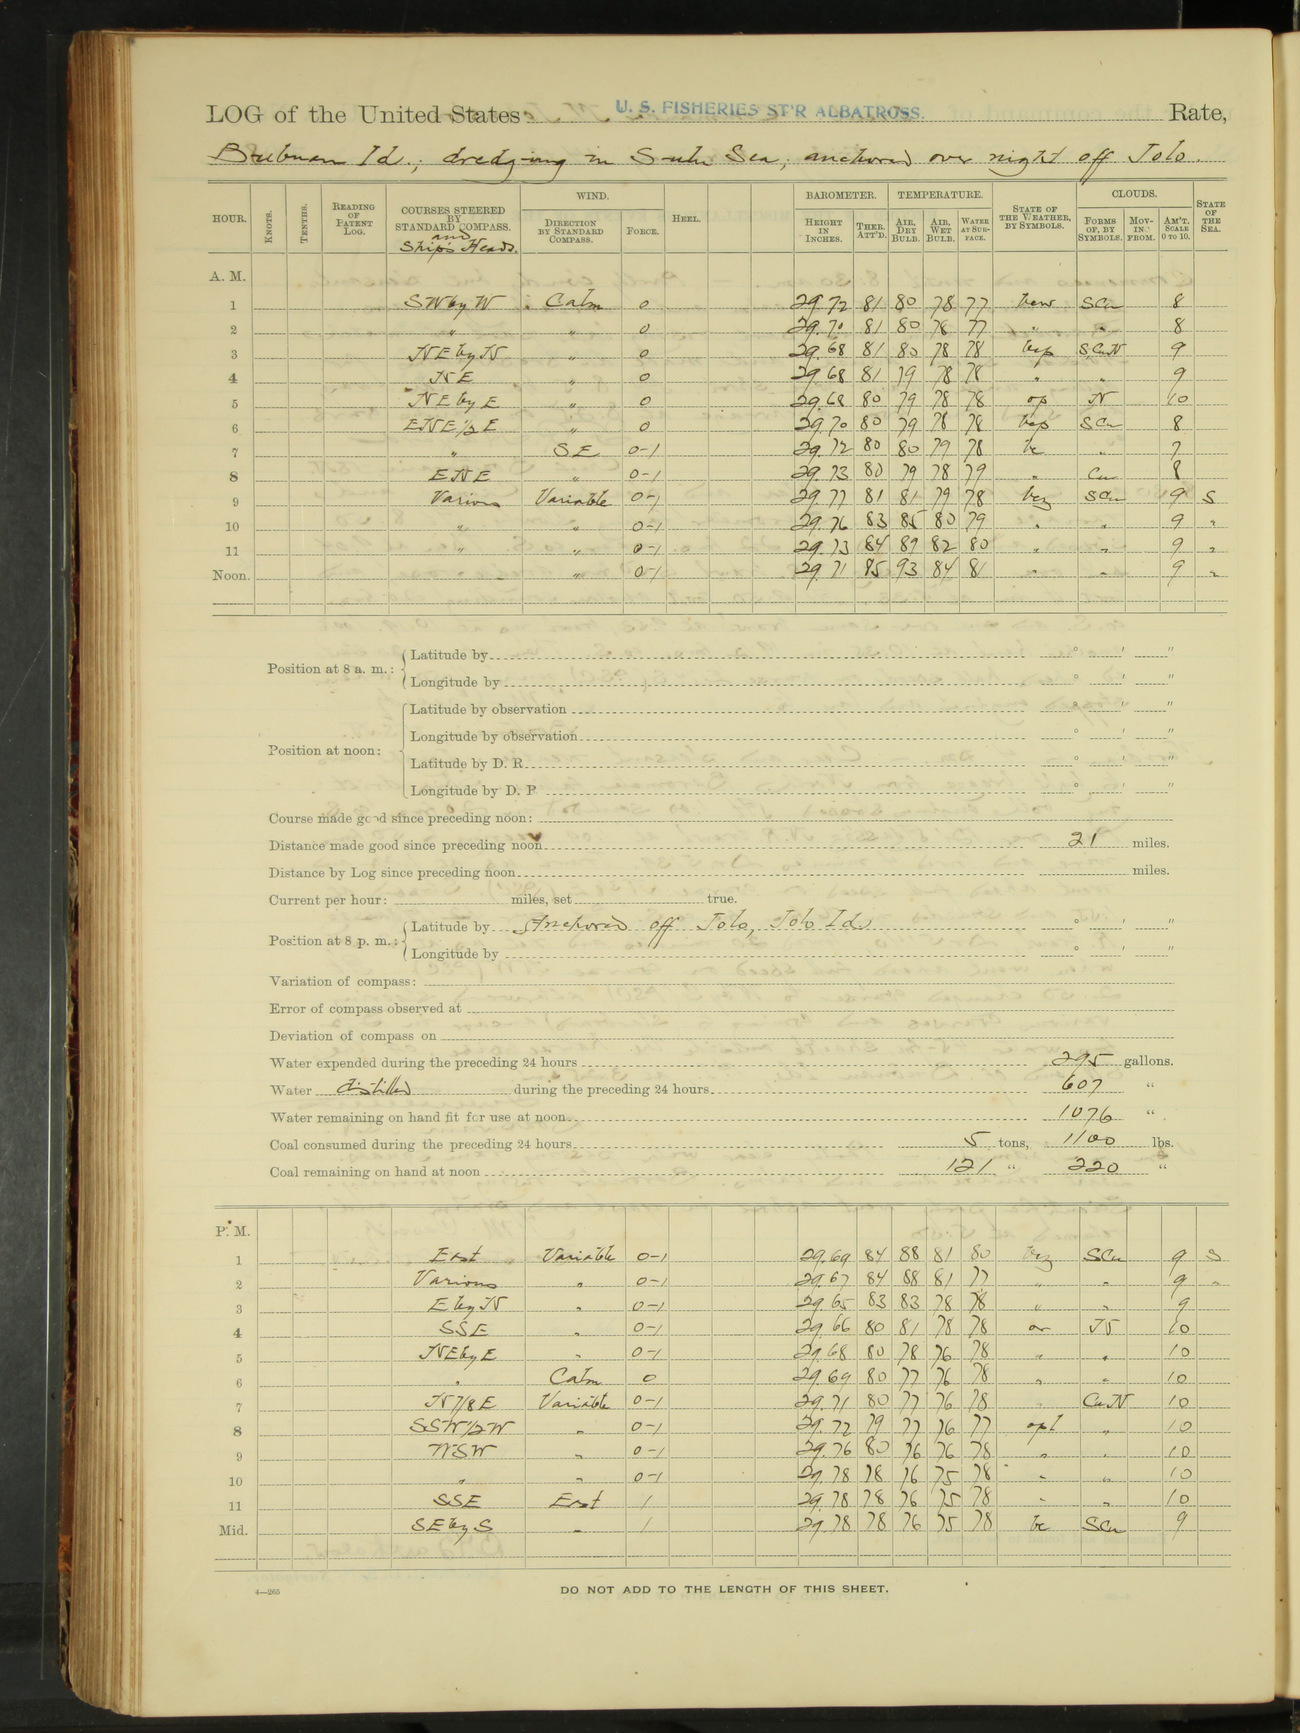 LOG of the United States U. S. FISHERIES ST'R ALBATROSS. Rate,
Bubuan Id.; dredging in Sulu Sea; anchored over night off Jolo.
HOUR. KNOTS. TENTHS. READING OF PATENT LOG. COURSES STEERED BY STANDARD COMPASS. and Ship's Heads. WIND. DIRECTION BY STANDARD COMPASS. FORCE. HEEL. BAROMETER. HEIGHT IN INCHES. THER. ATT'D. TEMPERATURE. AIR, DRY BULB. AIR, WET BULB. WATER AT SURFACE. STATE OF THE WEATHER, BY SYMBOLS. CLOUDS. FORMS OF, BY SYMBOLS. MOVING FROM. AM'T. SCALE 0 TO 10. STATE OF THE SEA.
A. M.
1 SW by W Calm 0 29.72 81 80 78 77 SCu 8
2 " " 0 29.70 81 80 78 77 " " 8
3 NE by N " 0 29.68 81 80 78 78 bcp S,Cu.N 9
4 NE " 0 29.68 81 79 78 78 " " 9
5 NE by E " 0 29.68 80 79 78 78 op N 10
6 ENE 1/2 E " 0 29.70 80 79 78 78 bcp SCu 8
7 " SE 0-1 29.72 80 80 79 78 bc " 7
8 ENE " 0-1 29.73 80 79 78 79 " Cu 8
9 Various Variable 0-1 29.77 81 81 79 78 bcz SCu 9 S
10 " " 0-1 29.76 83 85 80 79 " " 9 "
11 " " 0-1 29.73 84 89 82 80 " " 9 "
Noon. " 0-1 29.71 85 93 84 81 " " 9 "
Position at 8 a. m.: Latitude by ° ' "
Longitude by ° ' "
Position at noon: Latitude by observation ° ' "
Longitude by observation ° ' "
Latitude by D. R. ° ' "
Longitude by D. R. ° ' "
Course made good since preceding noon:
Distance made good since preceding noon 21 miles.
Distance by Log since preceding noon miles.
Current per hour: miles, set true.
Position at 8 p. m.: Latitude by Anchored off Jolo, Jolo Id. ° ' "
Longitude by ° ' "
Variation of compass:
Error of compass observed at
Deviation of compass on
Water expended during the preceding 24 hours 295 gallons.
Water distilled during the preceding 24 hours 607 "
Water remaining on hand fit for use at noon 1076 "
Coal consumed during the preceding 24 hours 5 tons, 1100 lbs.
Coal remaining on hand at noon 121 " 220 "
P. M.
1 East Variable 0-1 29.69 84 88 81 80 bcz SCu 9 S
2 Various " 0-1 29.67 84 88 81 77 " " 9 "
3 E by N " 0-1 29.65 83 83 78 78 " " 9
4 SSE " 0-1 29.66 80 81 78 78 or N 10
5 NE by E " 0-1 29.68 80 78 76 78 " " 10
6 " Calm 0 29.69 80 77 76 78 " " 10
7 N 7/8 E Variable 0-1 29.71 80 77 76 78 " CuN 10
8 SSW 1/2 W " 0-1 29.72 79 77 76 77 opl " 10
9 WSW " 0-1 29.76 80 76 76 78 " " 10
10 " " 0-1 29.78 78 76 75 78 " " 10
11 SSE East 1 29.78 78 76 75 78 " " 10
Mid. SE by S " 1 29.78 78 76 75 78 bc SCu 9
4—265 DO NOT ADD TO THE LENGTH OF THIS SHEET.